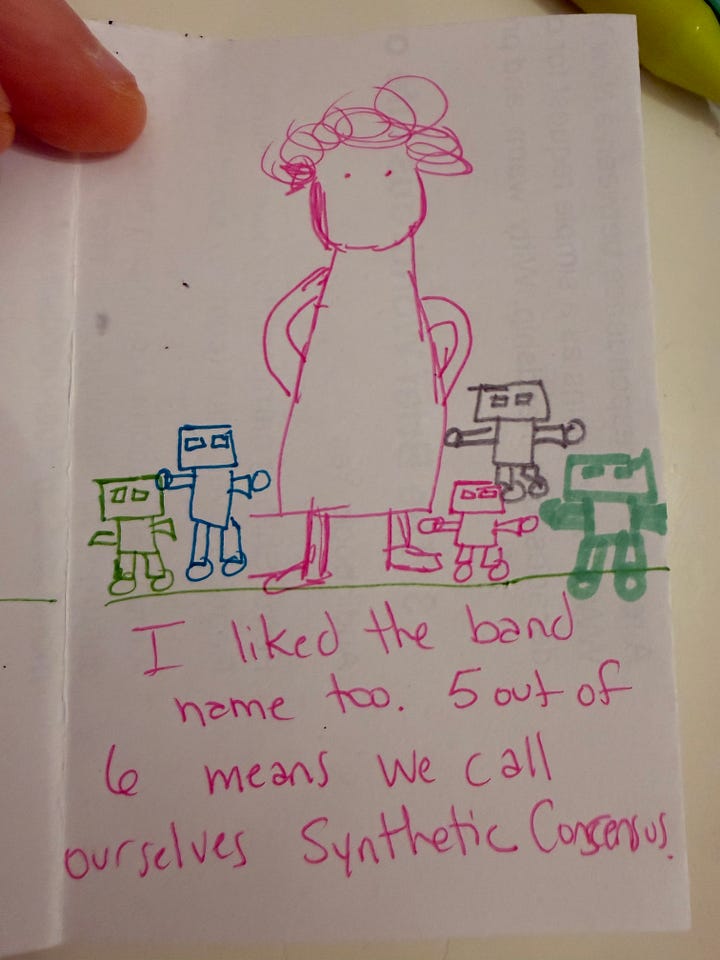 I liked the band
name too. 5 out of
6 means we call
ourselves Synthetic Consensus.